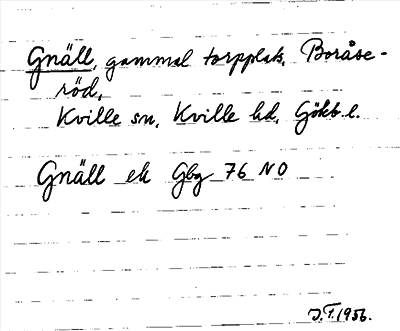 Gnäll, gammal torpplats, Boråse-
röd,
Kville sn, Kville hd, Götb. l.
Gnäll ek Gbg 76 NO
J.T. 1956.